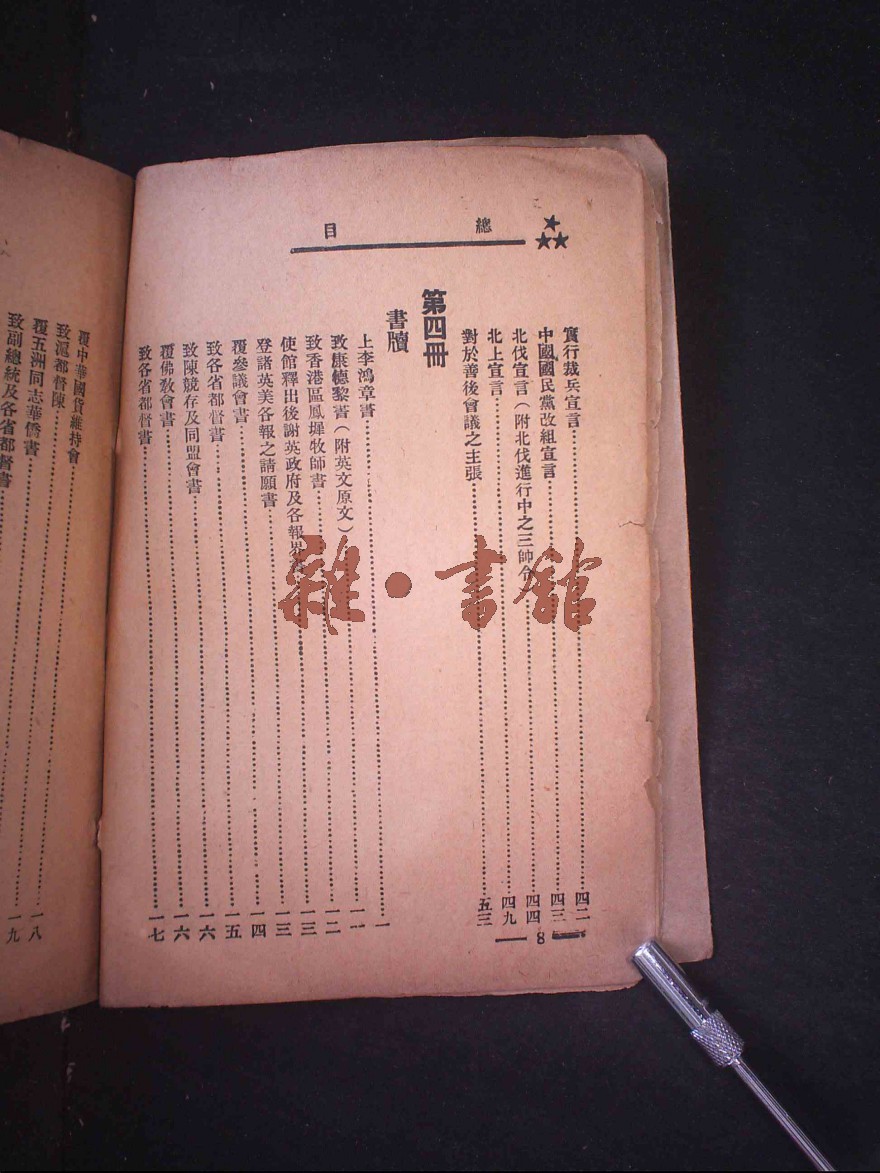 總目
實行裁兵宣言……四二
中國國民黨改組宣言……四三
北伐宣言（附北伐進行中之三帥令）……四四
北上宣言……四九
對於善後會議之主張……五三
第四冊
書牘
上李鴻章書……一
致康德黎書（附英文原文）……一一
致香港區鳳墀牧師書……一二
使館釋出後謝英政府及各報界……一三
登諸英美各報之請願書……一三
覆參議會書……一四
致各省都督書……一五
致陳競存及同盟會書……一六
覆佛教會書……一六
致各省都督書……一七
8
覆中華國貨維持會
致滬都督陳……一八
覆五洲同志華僑書……一九
致副總統及各省都督書
雜·書館